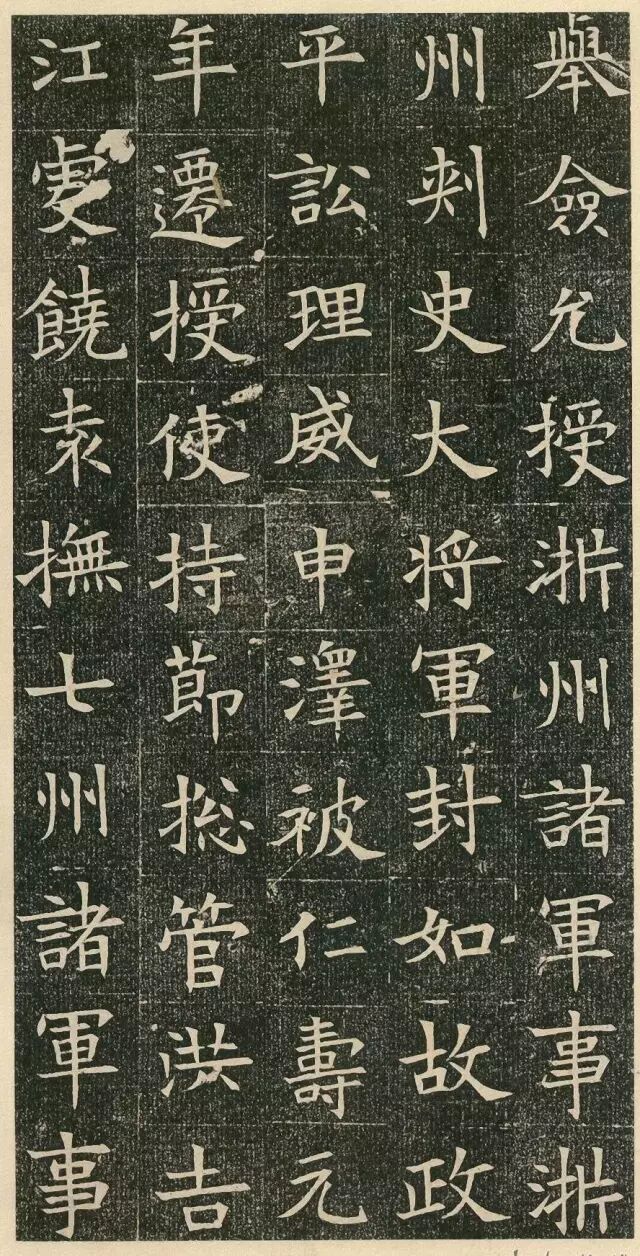 舉僉允授淅州諸軍事淅
州刺史大将軍封如故政
平訟理威申澤被仁壽元
年遷授使持節揔管洪吉
江虔饒袁撫七州諸軍事